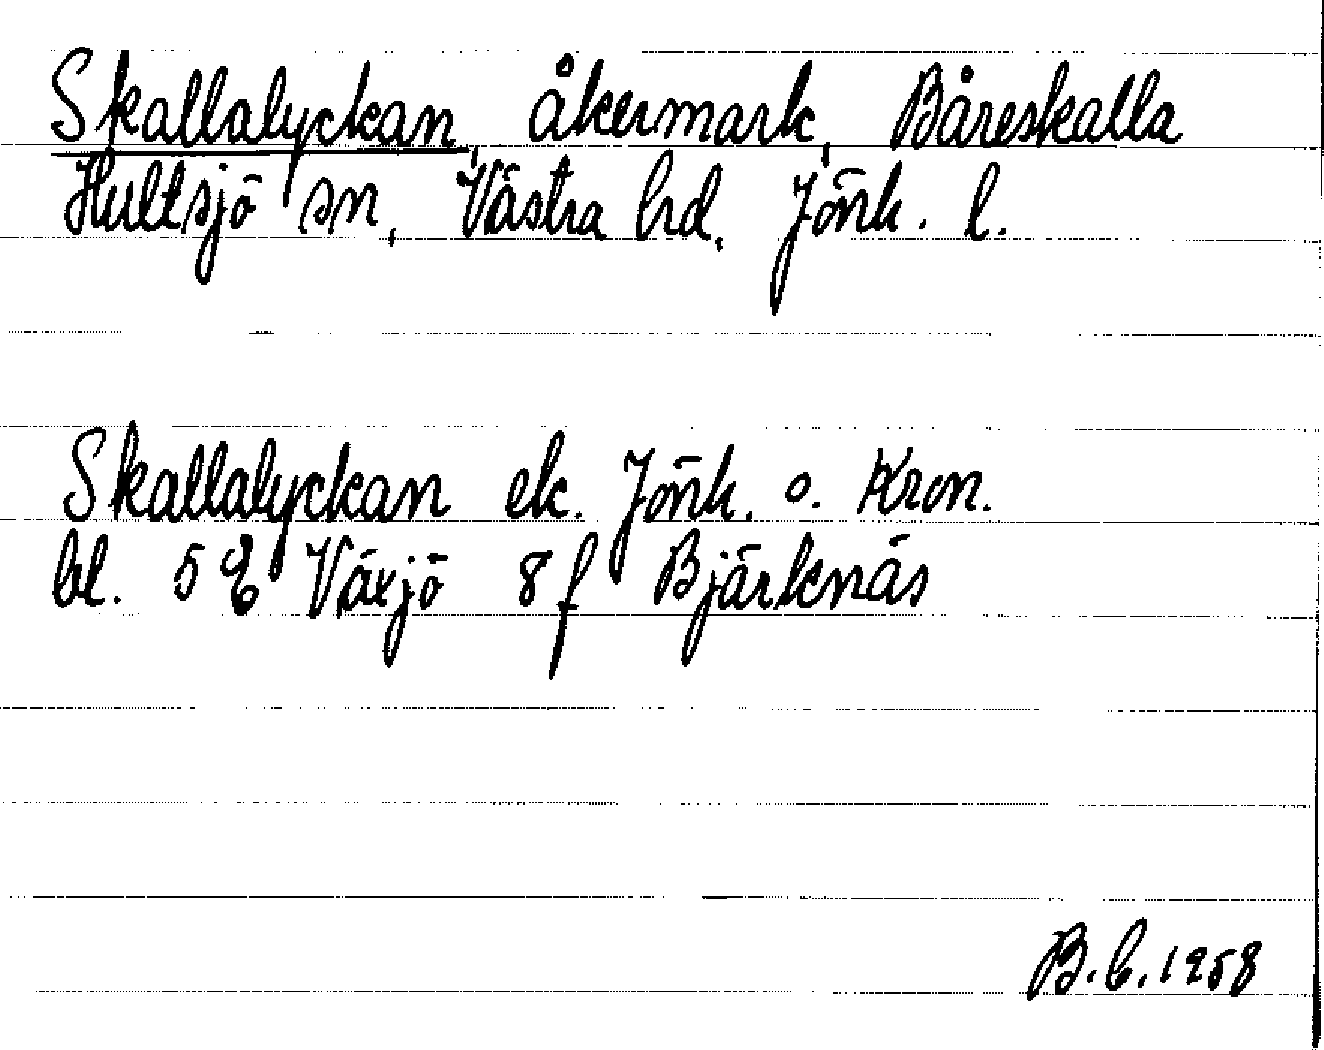 Skallalyckan, åkermark, Båreskalla
Hultsjö sn, Västra hd, Jönk. l.
Skallalyckan ek. Jönk. o. Kron.
bl. 5 E Växjö 8 f Bjärknäs
B.C. 1958